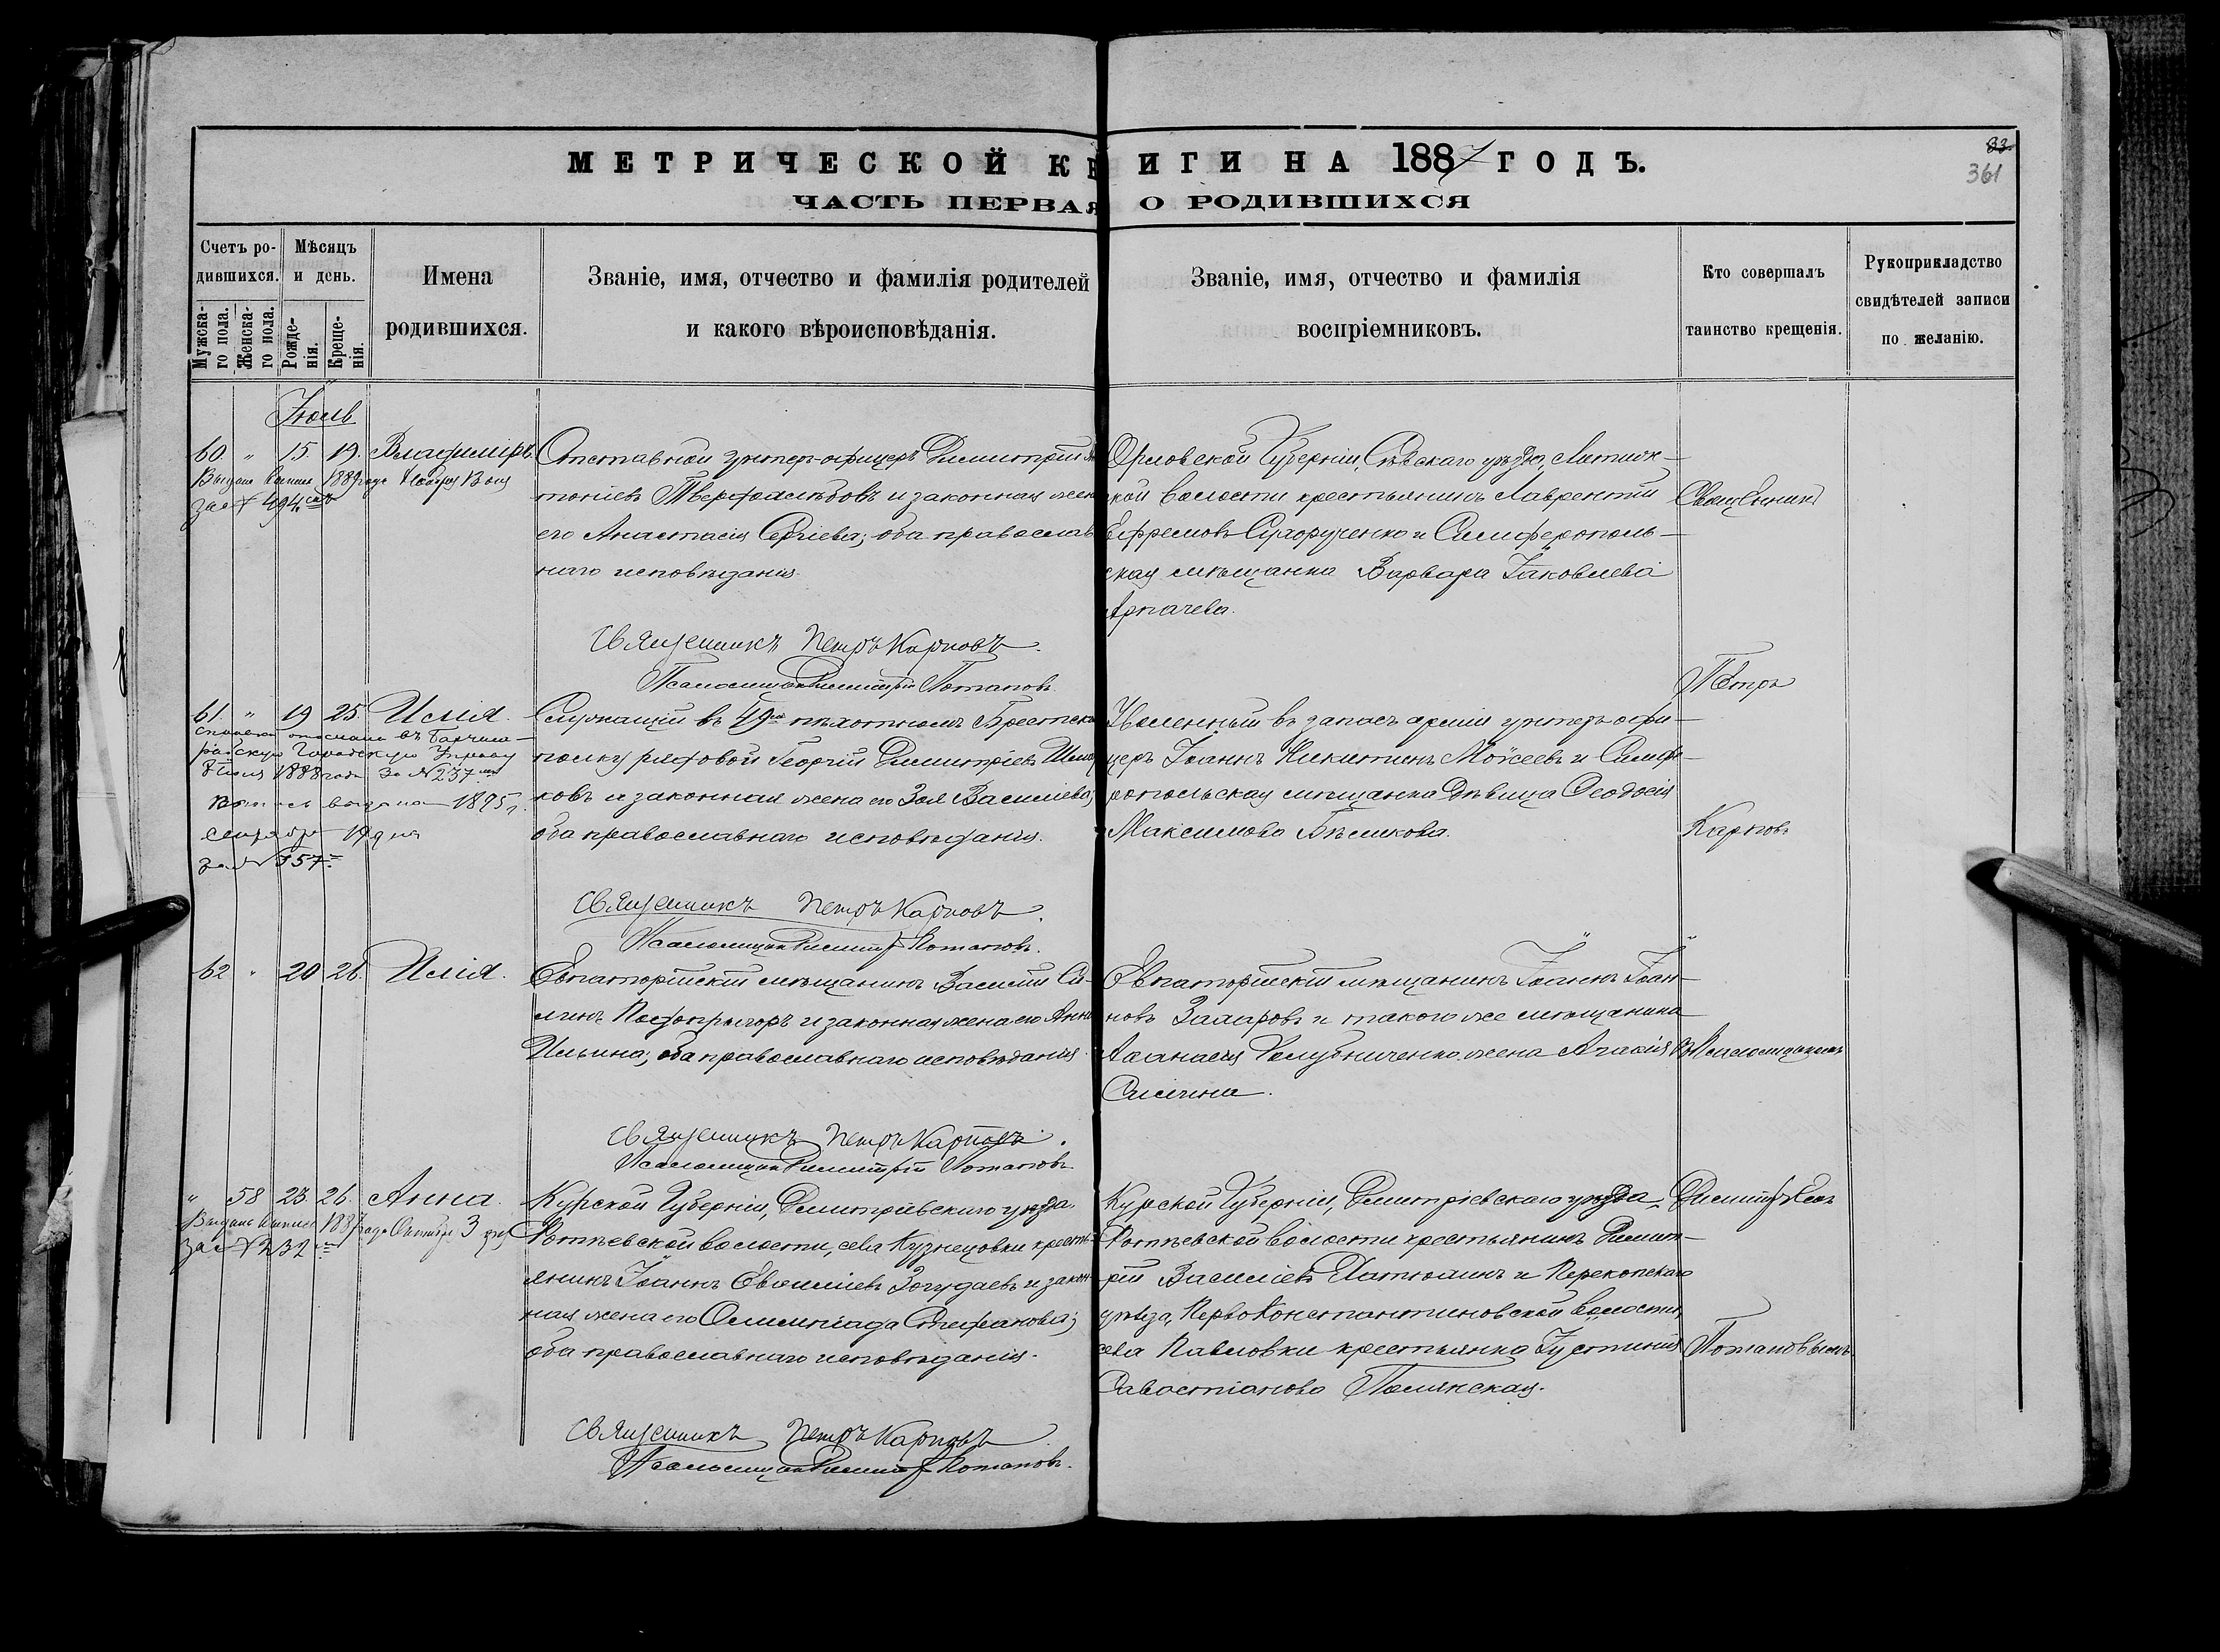 МЕТРИЧЕСКОЙ КНИГИ НА 1887 ГОДЪ.
ЧАСТЬ ПЕРВАЯ О РОДИВШИХСЯ
33
361
Счетъ ро-
дившихся.
Мужска-
го пола.
Женска-
го пола.
Мѣсяцъ
и день.
Рожде-
нія.
Креще-
нія.
Имена
родившихся.
Званіе, имя, отчество и фамилія родителей
и какого вѣроисповѣданія.
Званіе, имя, отчество и фамилія
воспріемниковъ.
Кто совершалъ
таинство крещенія.
Рукоприкладство
свидѣтелей записи
по желанію.
Іюль
60 " 15 19. Владиміръ
за № 494
Отставной унтер-офицеръ Димитрій Ан
тоніевъ Твердохлѣбовъ и законная жена
его Анастасія Сергіева; оба православ
наго исповѣданія.
Священникъ Петръ Карповъ.
Псаломщикъ Димитрій Потаповъ.
Орловской Губерніи, Сѣвскаго уѣзда,
кой волости крестьянинъ Лаврентій
Ефремовъ Сухорученко и Симферополь-
ская мѣщанка Варвара Іаковлева
Арпачева.
61. " 19 25 Илія.
Справка отослана въ
Городскую Управу
Іюля 1888 года за № 237
выдана 1895 г.
сентября 19 дня
за № 357.
Служащій въ 49мъ пѣхотномъ Брестск
полку рядовой Георгій Димитріевъ
ковъ и законная жена его Зоя Василіева;
оба православнаго исповѣданія.
Священникъ Петръ Карповъ.
Псаломщикъ Димитр. Потаповъ.
Уволенный въ запасъ арміи унтеръ-офи-
церъ Іоаннъ Никитинъ Моѵсеевъ и Симфе-
ропольская мѣщанка дѣвица Ѳеодосія
Максимова Бѣликова.
62 " 20 26. Илія.
Евпаторійскій мѣщанинъ Василій Си-
линъ Подопригоръ и законная жена его Анна
Ильина; оба православнаго исповѣданія.
Священникъ Петръ Карповъ.
Псаломщикъ Димитрій Потаповъ.
Евпаторійскій мѣщанинъ Іоаннъ Іоан-
новъ Захаровъ и такого же мѣщанина
Аѳанасія Голубниченко жена Агаѳія
" 58 23. 26. Анна.
Выдана выпись 1887 года Октября 3 дня
за № 232
Курской Губерніи, Димитріевскаго уѣзда,
волости, села Кузнецовки кресть-
янинъ Іоаннъ Евѳиміевъ и закон-
ная жена его Олимпіада Стефанова;
оба православнаго исповѣданія.
Священникъ Петръ Карповъ
Псаломщикъ Димитр. Потаповъ.
Курской Губерніи, Димитріевскаго уѣзда,
волости крестьянинъ Димит-
рій Василіевъ и Перекопскаго
уѣзда, Перво Константиновской волости,
села Павловки крестьянка Іустинія
Савостіанова Полянская.
Священникъ
Петръ
Карповъ
съ Псаломщикомъ
Димитріемъ
Потаповымъ